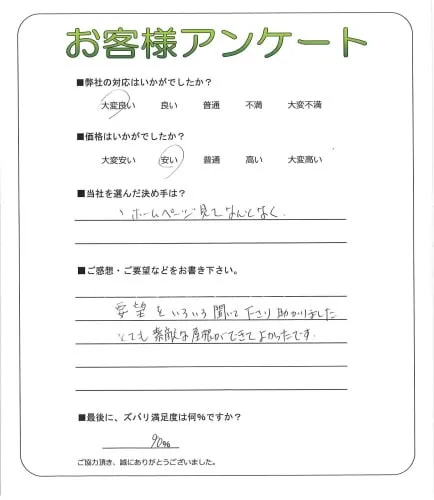 お客様アンケート
■弊社の対応はいかがでしたか?
大変良い 良い 普通 不満 大変不満
■価格はいかがでしたか?
大変安い 安い 普通 高い 大変高い
■当社を選んだ決め手は?
、ホームページ見てなんとなく.
■ご感想・ご要望などをお書き下さい。
要望をいろいろ聞いて下さり助かりました
とても素敵な屋根ができてよかったです.
■最後に、ズバリ満足度は何%ですか?
90%
ご協力頂き、誠にありがとうございました。